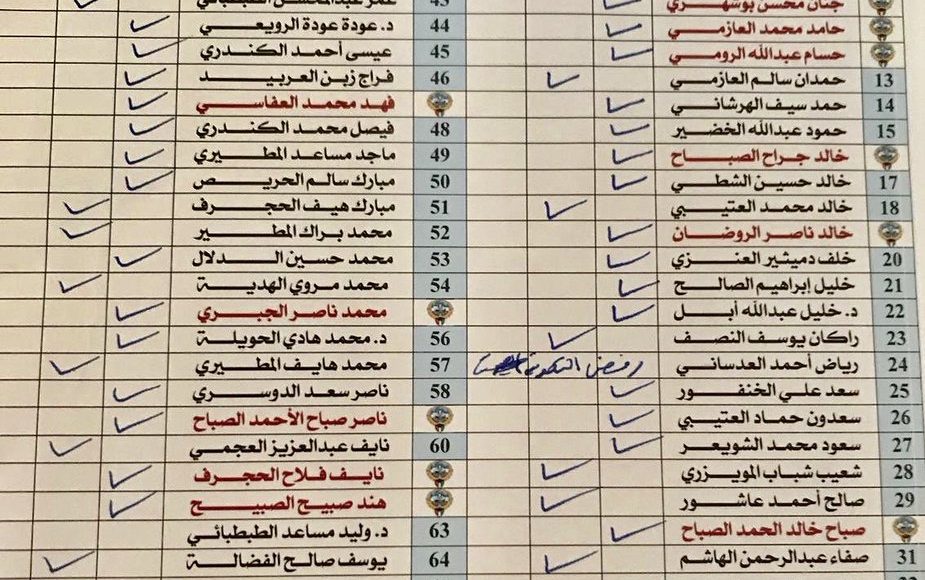 جنان محسن بوشهري
حامد محمد العازمي
حسام عبدالله الرومي
13 حمدان سالم العازمي
14 حمد سيف الهرشاني
15 حمود عبدالله الخضير
خالد جراح الصباح
17 خالد حسين الشطي
18 خالد محمد العتيبي
خالد ناصر الروضان
20 خلف دميثير العنزي
21 خليل إبراهيم الصالح
22 د. خليل عبدالله أبل
23 راكان يوسف النصف
24 رياض أحمد العدساني رفض
25 سعد علي الخنفور
26 سعدون حماد العتيبي
27 سعود محمد الشويعر
28 شعيب شباب المويزري
29 صالح أحمد عاشور
صباح خالد الحمد الصباح
31 صفاء عبدالرحمن الهاشم
43 عمر عبدالمحسن الطبطبائي
44 د. عودة عودة الرويعي
45 عيسى أحمد الكندري
46 فراج زبن العربيد
فهد محمد العفاسي
48 فيصل محمد الكندري
49 ماجد مساعد المطيري
50 مبارك سالم الحريص
51 مبارك هيف الحجرف
52 محمد براك المطير
53 محمد حسين الدلال
54 محمد مروي الهدية
محمد ناصر الجبري
56 د. محمد هادي الحويلة
57 محمد هايف المطيري
58 ناصر سعد الدوسري
ناصر صباح الأحمد الصباح
60 نايف عبدالعزيز العجمي
نايف فلاح الحجرف
هند صبيح الصبيح
63 د. وليد مساعد الطبطبائي
64 يوسف صالح الفضالة